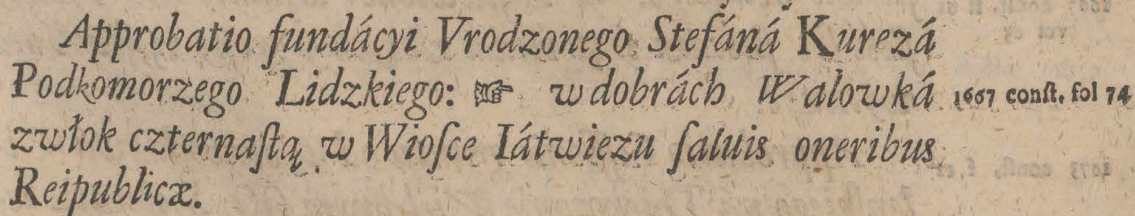 Approbatio fundácyi Vrodzonego Stefáná Kurezá
Podkomorzego Lidzkiego: ☞ w dobrách Walowká 1667 conſt. fol 74
zwłok czternaſtą w Wioſce Iátwiezu ſaluis oneribus
Reipublicæ.